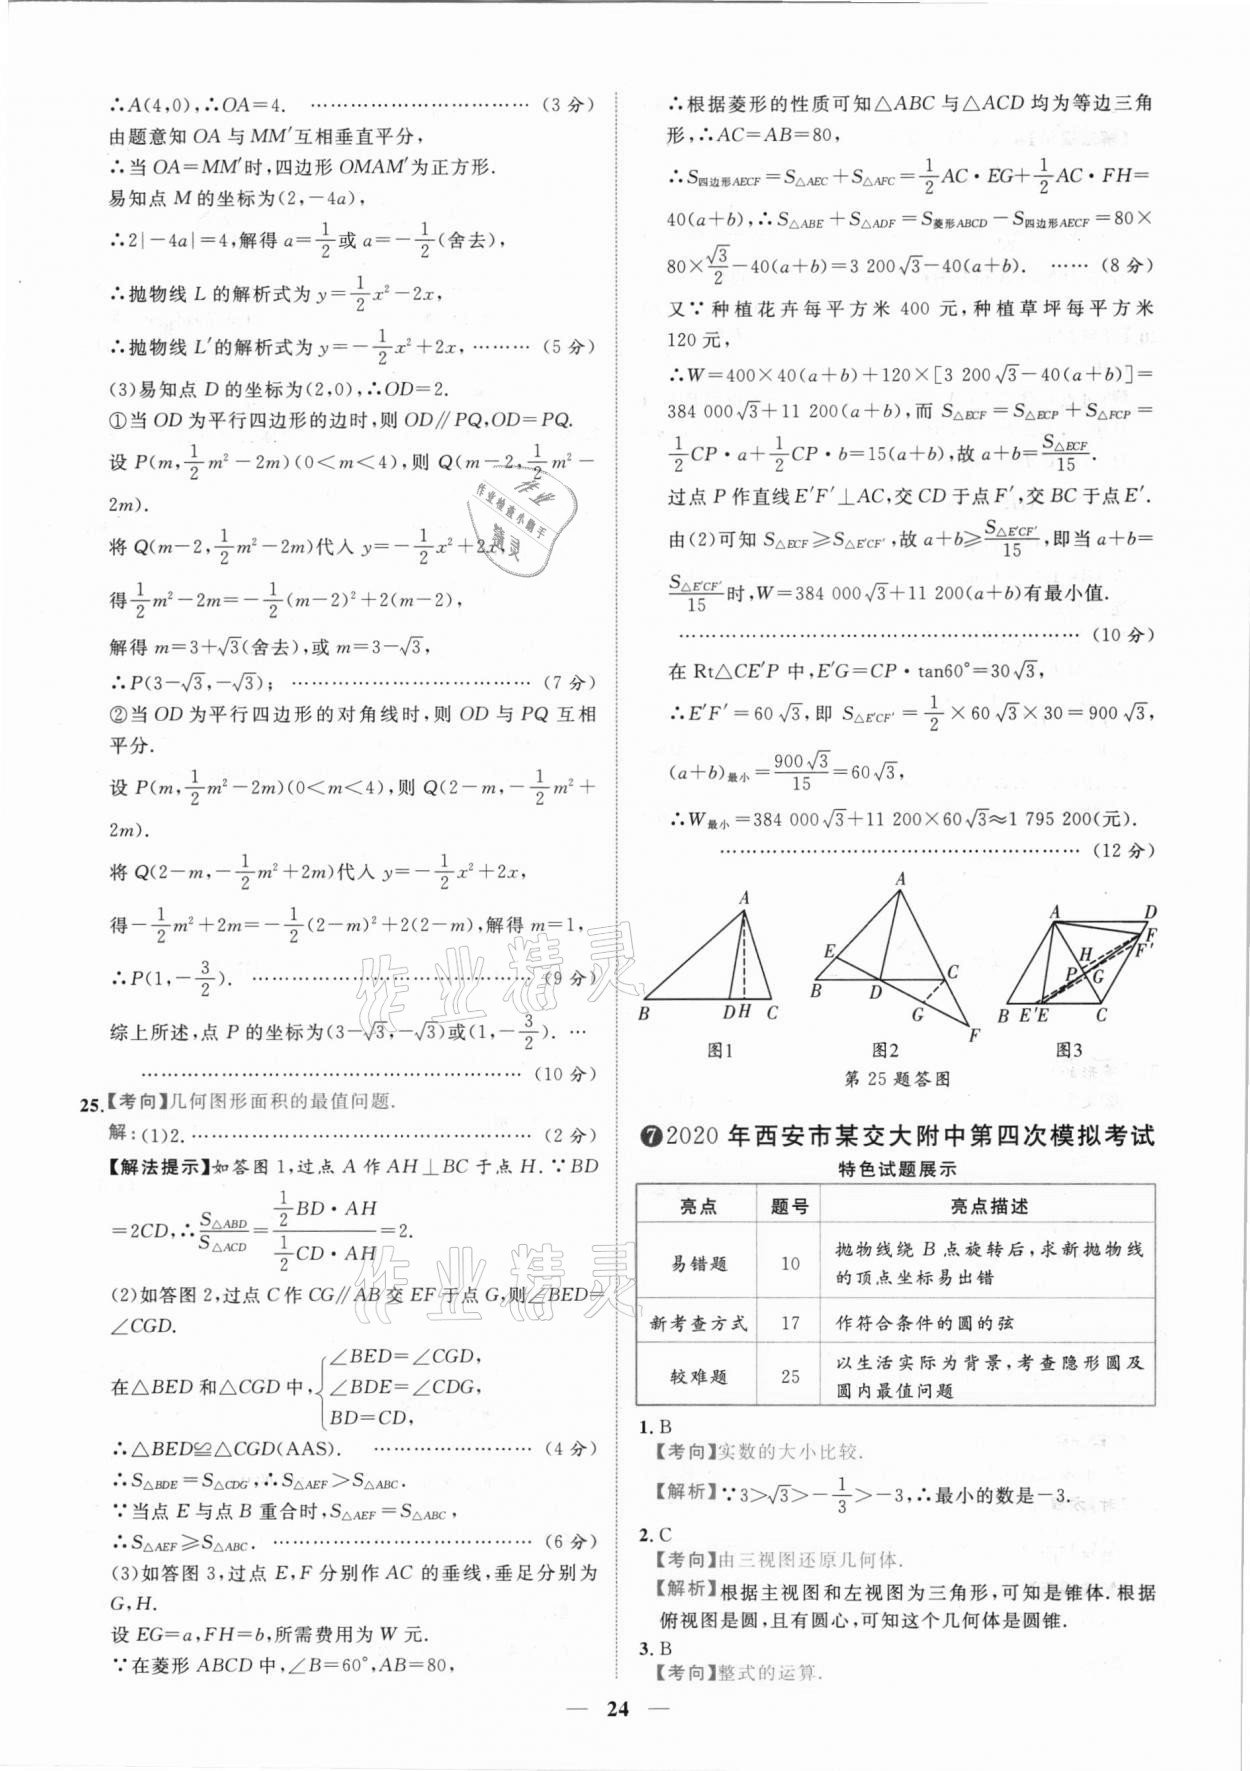 ∴A(4,0),∴OA=4. …………………………… (3 分)
由题意知 OA 与 MM′互相垂直平分,
∴当 OA=MM′时,四边形 OMAM′为正方形.
易知点 M 的坐标为(2,-4a),
∴2|-4a|=4,解得 a=1/2或 a=-1/2(舍去),
∴抛物线 L 的解析式为 y=1/2x²-2x,
∴抛物线 L′的解析式为 y=-1/2x²+2x, ……… (5 分)
(3)易知点 D 的坐标为(2,0),∴OD=2.
①当 OD 为平行四边形的边时,则 OD∥PQ,OD=PQ.
设 P(m,1/2m²-2m)(0<m<4),则 Q(m-2,1/2m²-
2m).
将 Q(m-2,1/2m²-2m)代入 y=-1/2x²+2x,
得1/2m²-2m=-1/2(m-2)²+2(m-2),
解得 m=3+√3(舍去),或 m=3-√3,
∴P(3-√3,-√3); …………………………… (7 分)
②当 OD 为平行四边形的对角线时,则 OD 与 PQ 互相
平分.
设 P(m,1/2m²-2m)(0<m<4),则 Q(2-m,-1/2m²+
2m).
将 Q(2-m,-1/2m²+2m)代入 y=-1/2x²+2x,
得-1/2m²+2m=-1/2(2-m)²+2(2-m),解得 m=1,
∴P(1,-3/2). …………………………… (9 分)
综上所述,点 P 的坐标为(3-√3,-√3)或(1,-3/2). …
…………………………………………… (10 分)
25.【考向】几何图形面积的最值问题.
解:(1)2. …………………………………… (2 分)
【解法提示】如答图 1,过点 A 作 AH⊥BC 于点 H.∵BD
=2CD,∴S△ABD/S△ACD=(1/2BD·AH)/(1/2CD·AH)=2.
(2)如答图 2,过点 C 作 CG∥AB 交 EF 于点 G,则∠BED=
∠CGD.
在△BED 和△CGD 中,{∠BED=∠CGD,
∠BDE=∠CDG,
BD=CD,
∴△BED≌△CGD(AAS). …………………… (4 分)
∴S△BDE=S△CDG,∴S△AEF>S△ABC.
∵当点 E 与点 B 重合时,S△AEF=S△ABC,
∴S△AEF≥S△ABC. …………………………… (6 分)
(3)如答图 3,过点 E,F 分别作 AC 的垂线,垂足分别为
G,H.
设 EG=a,FH=b,所需费用为 W 元.
∵在菱形 ABCD 中,∠B=60°,AB=80,
∴根据菱形的性质可知△ABC 与△ACD 均为等边三角
形,∴AC=AB=80,
∴S四边形AECF=S△AEC+S△AFC=1/2AC·EG+1/2AC·FH=
40(a+b),∴S△ABE+S△ADF=S菱形ABCD-S四边形AECF=80×
80×√3/2-40(a+b)=3 200√3-40(a+b). …… (8 分)
又∵种植花卉每平方米 400 元,种植草坪每平方米
120 元,
∴W=400×40(a+b)+120×[3 200√3-40(a+b)]=
384 000√3+11 200(a+b),而 S△ECF=S△ECP+S△FCP=
1/2CP·a+1/2CP·b=15(a+b),故 a+b=S△ECF/15.
过点 P 作直线 E′F′⊥AC,交 CD 于点 F′,交 BC 于点 E′.
由(2)可知 S△ECF≥S△E′CF′,故 a+b≥S△E′CF′/15,即当 a+b=
S△E′CF′/15时,W=384 000√3+11 200(a+b)有最小值.
…………………………………………… (10 分)
在 Rt△CE′P 中,E′G=CP·tan60°=30√3,
∴E′F′=60√3,即 S△E′CF′=1/2×60√3×30=900√3,
(a+b)最小=900√3/15=60√3,
∴W最小=384 000√3+11 200×60√3≈1 795 200(元).
…………………………………………… (12 分)
A
B DH C
图1
A
E
B D C
G
F
图2
A D
F
F′
H
P G
B E′E C
图3
第 25 题答图
❼2020 年西安市某交大附中第四次模拟考试
特色试题展示
亮点 题号 亮点描述
易错题 10 抛物线绕 B 点旋转后,求新抛物线
的顶点坐标易出错
新考查方式 17 作符合条件的圆的弦
较难题 25 以生活实际为背景,考查隐形圆及
圆内最值问题
1. B
【考向】实数的大小比较.
【解析】∵3>√3>-1/3>-3,∴最小的数是-3.
2. C
【考向】由三视图还原几何体.
【解析】根据主视图和左视图为三角形,可知是锥体.根据
俯视图是圆,且有圆心,可知这个几何体是圆锥.
3. B
【考向】整式的运算.
— 24 —
作业
作业检查小助手
精灵
作业精灵
作业精灵